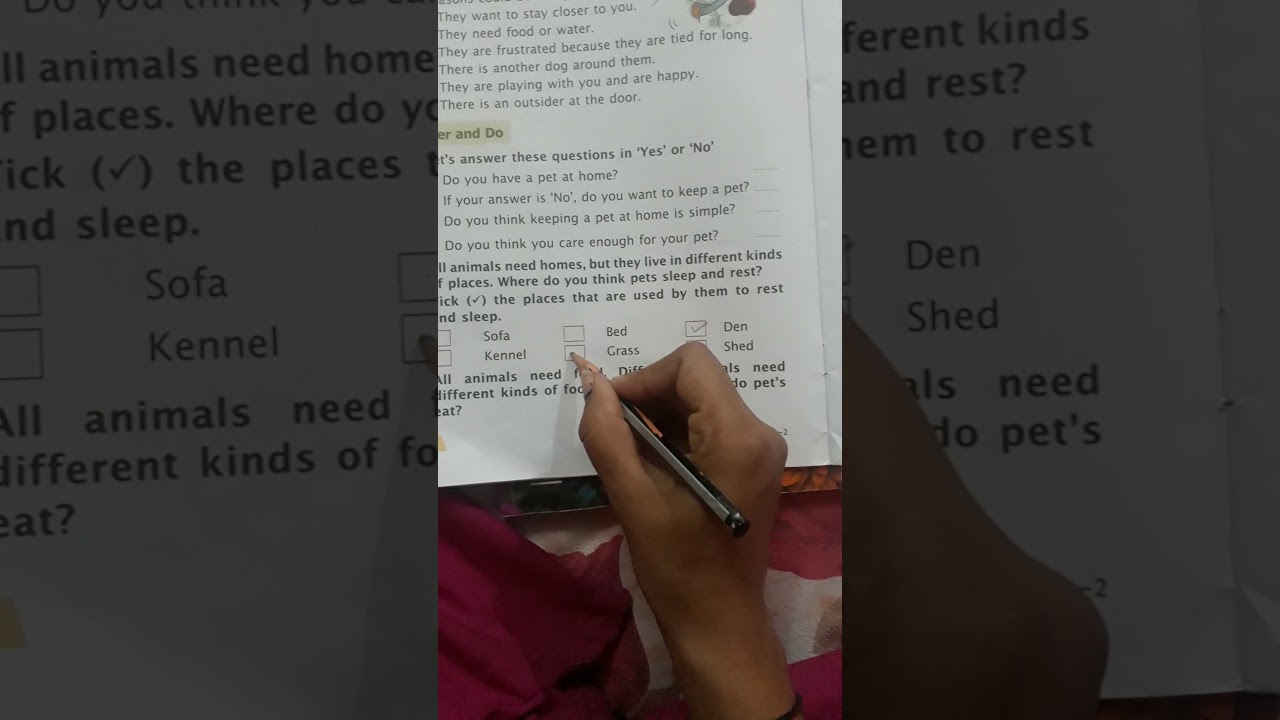 They want to stay closer to you.
They need food or water.
They are frustrated because they are tied for long.
There is another dog around them.
They are playing with you and are happy.
There is an outsider at the door.
er and Do
t's answer these questions in ‘Yes’ or ‘No’
Do you have a pet at home? .........
If your answer is ‘No’, do you want to keep a pet? .........
Do you think keeping a pet at home is simple? .........
Do you think you care enough for your pet? .........
ll animals need homes, but they live in different kinds
f places. Where do you think pets sleep and rest?
ick (✓) the places that are used by them to rest
nd sleep.
Sofa Bed ✓ Den
Kennel Grass Shed
All animals need als need
different kinds of do pet's
eat?
-2